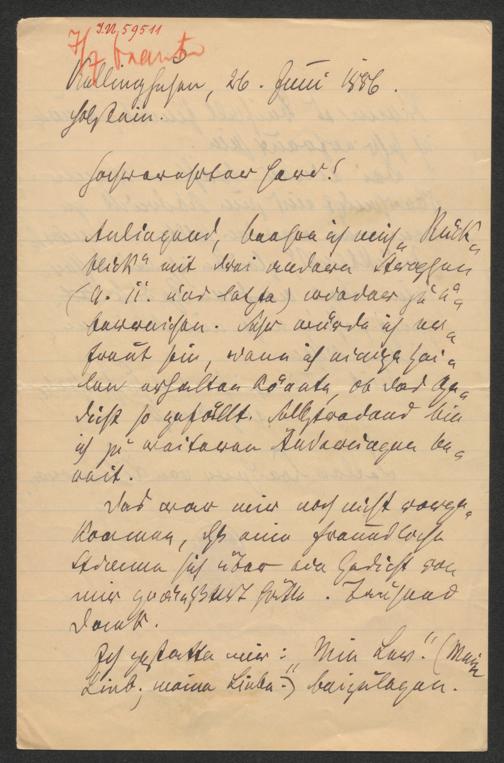 I.N. 59511
Kellinghusen, 26. Juni 1886.
Holstein.
Hochverehrter Herr!
Anliegend, beehre ich mich „Rück-
blick“ mit drei andern Strophen
(9. 11. und letzte) wieder zu ü-
berreichen. Sehr würde ich er-
freut sein, wenn ich einige Zei-
len erhalten könnte, ob das Ge-
dicht so gefällt. Selbstredend bin
ich zu weiteren Änderungen be-
reit.
Das war mir noch nicht vorge-
kommen, daß eine freundliche
Stimme sich über ein Gedicht von
mir geäußert hätte. Tausend
Dank.
Ich gestatte mir: „Min Lev.“ (Mein
Lieb, meine Liebe.“) beizulegen.